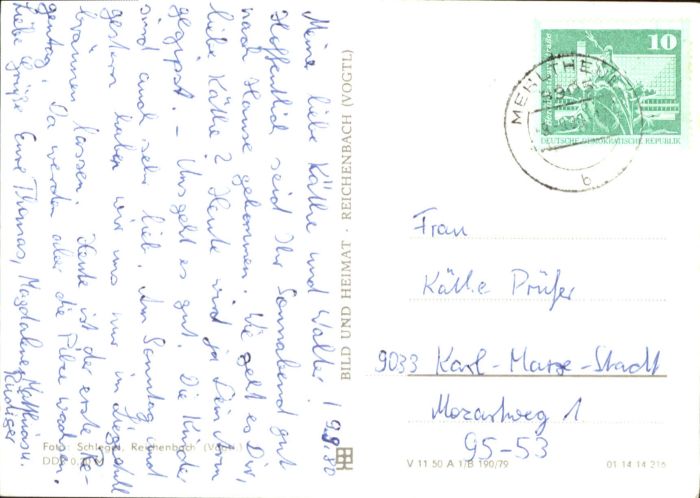 Meine liebe Käthe und Walter! 9.9.80
Hoffentlich seid Ihr Sonnabend gut
nach Hause gekommen. Wie geht es Dir,
liebe Käthe? Heute wird ja Dein Arm
gegipst. - Uns geht es gut. Die Kinder
sind auch sehr lieb. Am Sonntag und
gestern haben wir uns nur im Liegestuhl
bräunen lassen. Heute ist der erste Re-
gentag. Da werden aber die Pilze wachsen.
Liebe Grüße Eure Thomas, Magdalena, Matthias u.
Rüdiger
BILD UND HEIMAT · REICHENBACH (VOGTL)
Foto: Schlegel, Reichenbach (Vogtl.)
10
DEUTSCHE DEMOKRATISCHE REPUBLIK
MEHLTHEUER
b
Frau
Käthe Prüfer
9033 Karl-Marx-Stadt
Mozartweg 1
95-53
V 11 50 A 1/B 190/79
01 14 14 216